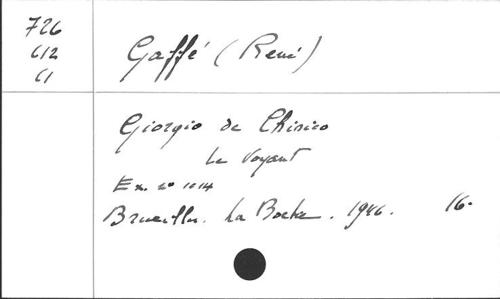 726
C12
C1
Gaffé (René)
Giorgio de Chirico
Le Voyant
Ex. n° 1014
Bruxelles. La Boétie. 1946. 16.